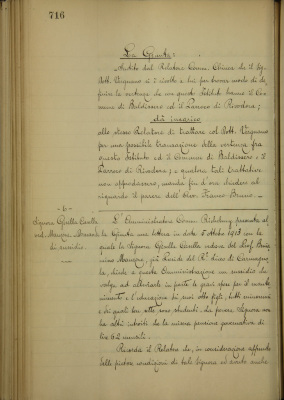 716
La Giunta
Udito dal Relatore Comm. che il Sig.
Dott. Vergnano si è rivolto a lui per trovar modo di de
finire la vertenza fra questo Istituto, il Co
mune di Baldissero ed il Parroco di Rivodora;
dà incarico
allo stesso Relatore di trattare col Dott. Vergnano
per una possibile transazione della vertenza fra
questo Istituto ed il Comune di Baldissero e il
Parroco di Rivodora; e qualora tali trattative
non approdassero, manda fin d'ora chiedersi al
riguardo il parere dell'Avv. Bruno.
- 6 -
Signora Cavalla
ved. domanda
di sussidio.
L'Amministratore Comm. presenta al
la Giunta una lettera in data 5 Ottobre 1913 con la
quale la Signora Cavalla vedova del Prof.
già del R.
chiede a questa Amministrazione un sussidio che
valga ad alleviarle in parte le gravi spese per il mante
nimento e l'educazione di suoi otto figli, tutti minorenni
e di quali ben sono studenti. La povera Signora non
ha altri introiti che la misera pensione governativa di
lire 62 mensili.
Ricorda il Relatore che, in considerazione appunto
delle penose condizioni di tale Signora ed avuto anche